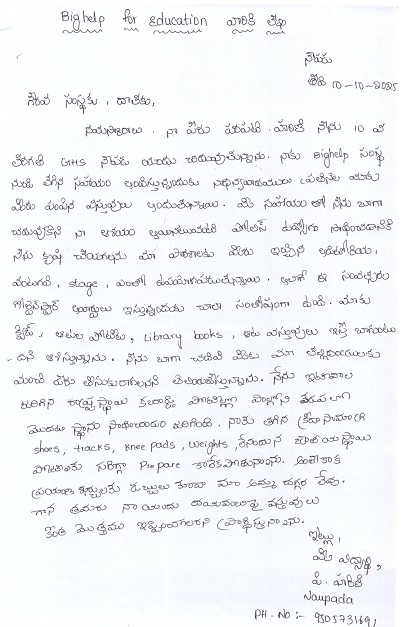 Bighelp for Education వారికి లేఖ
నౌపడ
తేది 10-10-2025
గౌరవ సంస్థకు, దాతకు,
నమస్కారాలు. నా పేరు హరిణి నేను 10 వ
తరగతి GHS నౌపడ నందు చదువుతున్నాను. నాకు Bighelp సంస్థ
నుండి తగిన సహాయం అందిస్తున్నందుకు ప్రతినెల మాకు
మీరు పంపిన వస్తువులు అందుతున్నాయి. మీ సహాయం తో నేను బాగా
చదువుకొని నా ఆశయం అయినటువంటి పోలీస్ ఉద్యోగం సాధించడానికి
నేను కృషి చేయగలను మా పాఠశాలకు మీరు ఇచ్చిన
వంటగది, stage, ఎంతో ఉపయోగపడుతున్నాయి. అలాగే ఈ సంవత్సరం
ఇస్తున్నందుకు చాలా సంతోషంగా ఉంది. మాకు
క్విజ్, ఆటల పోటీలు, Library books, ఆట వస్తువులు ఇస్తే బాగుంటుం
-దని ఆశిస్తున్నాను. నేను బాగా చదివి మీకు మా తల్లిదండ్రులకు
మంచి పేరు తీసుకురాగలనని తెలియజేస్తున్నాను. నేను ఇటీవల
జరిగిన రాష్ట్ర స్థాయి కబడ్డీ పోటీల్లో పాల్గొని
మొదటి స్థానం సాధించడం జరిగింది. నాకు తగిన క్రీడా సామాగ్రి
shoes, tracks, knee pads, weights, లేనందున జాతీయ స్థాయి
పోటీలకు సరిగ్గా Prepare కాలేకపోతున్నాను. అంతేకాక
ప్రయాణ ఖర్చులకు డబ్బులు కూడా మా అమ్మ దగ్గర లేవు.
గాన తమరు నాయందు దయవుంచి వస్తువులు
కొంత మొత్తం ఇవ్వగలరని ప్రార్థిస్తున్నాను.
ఇట్లు,
మీ విద్యార్థి,
పి. హరిణి
Naupada
PH - No :-